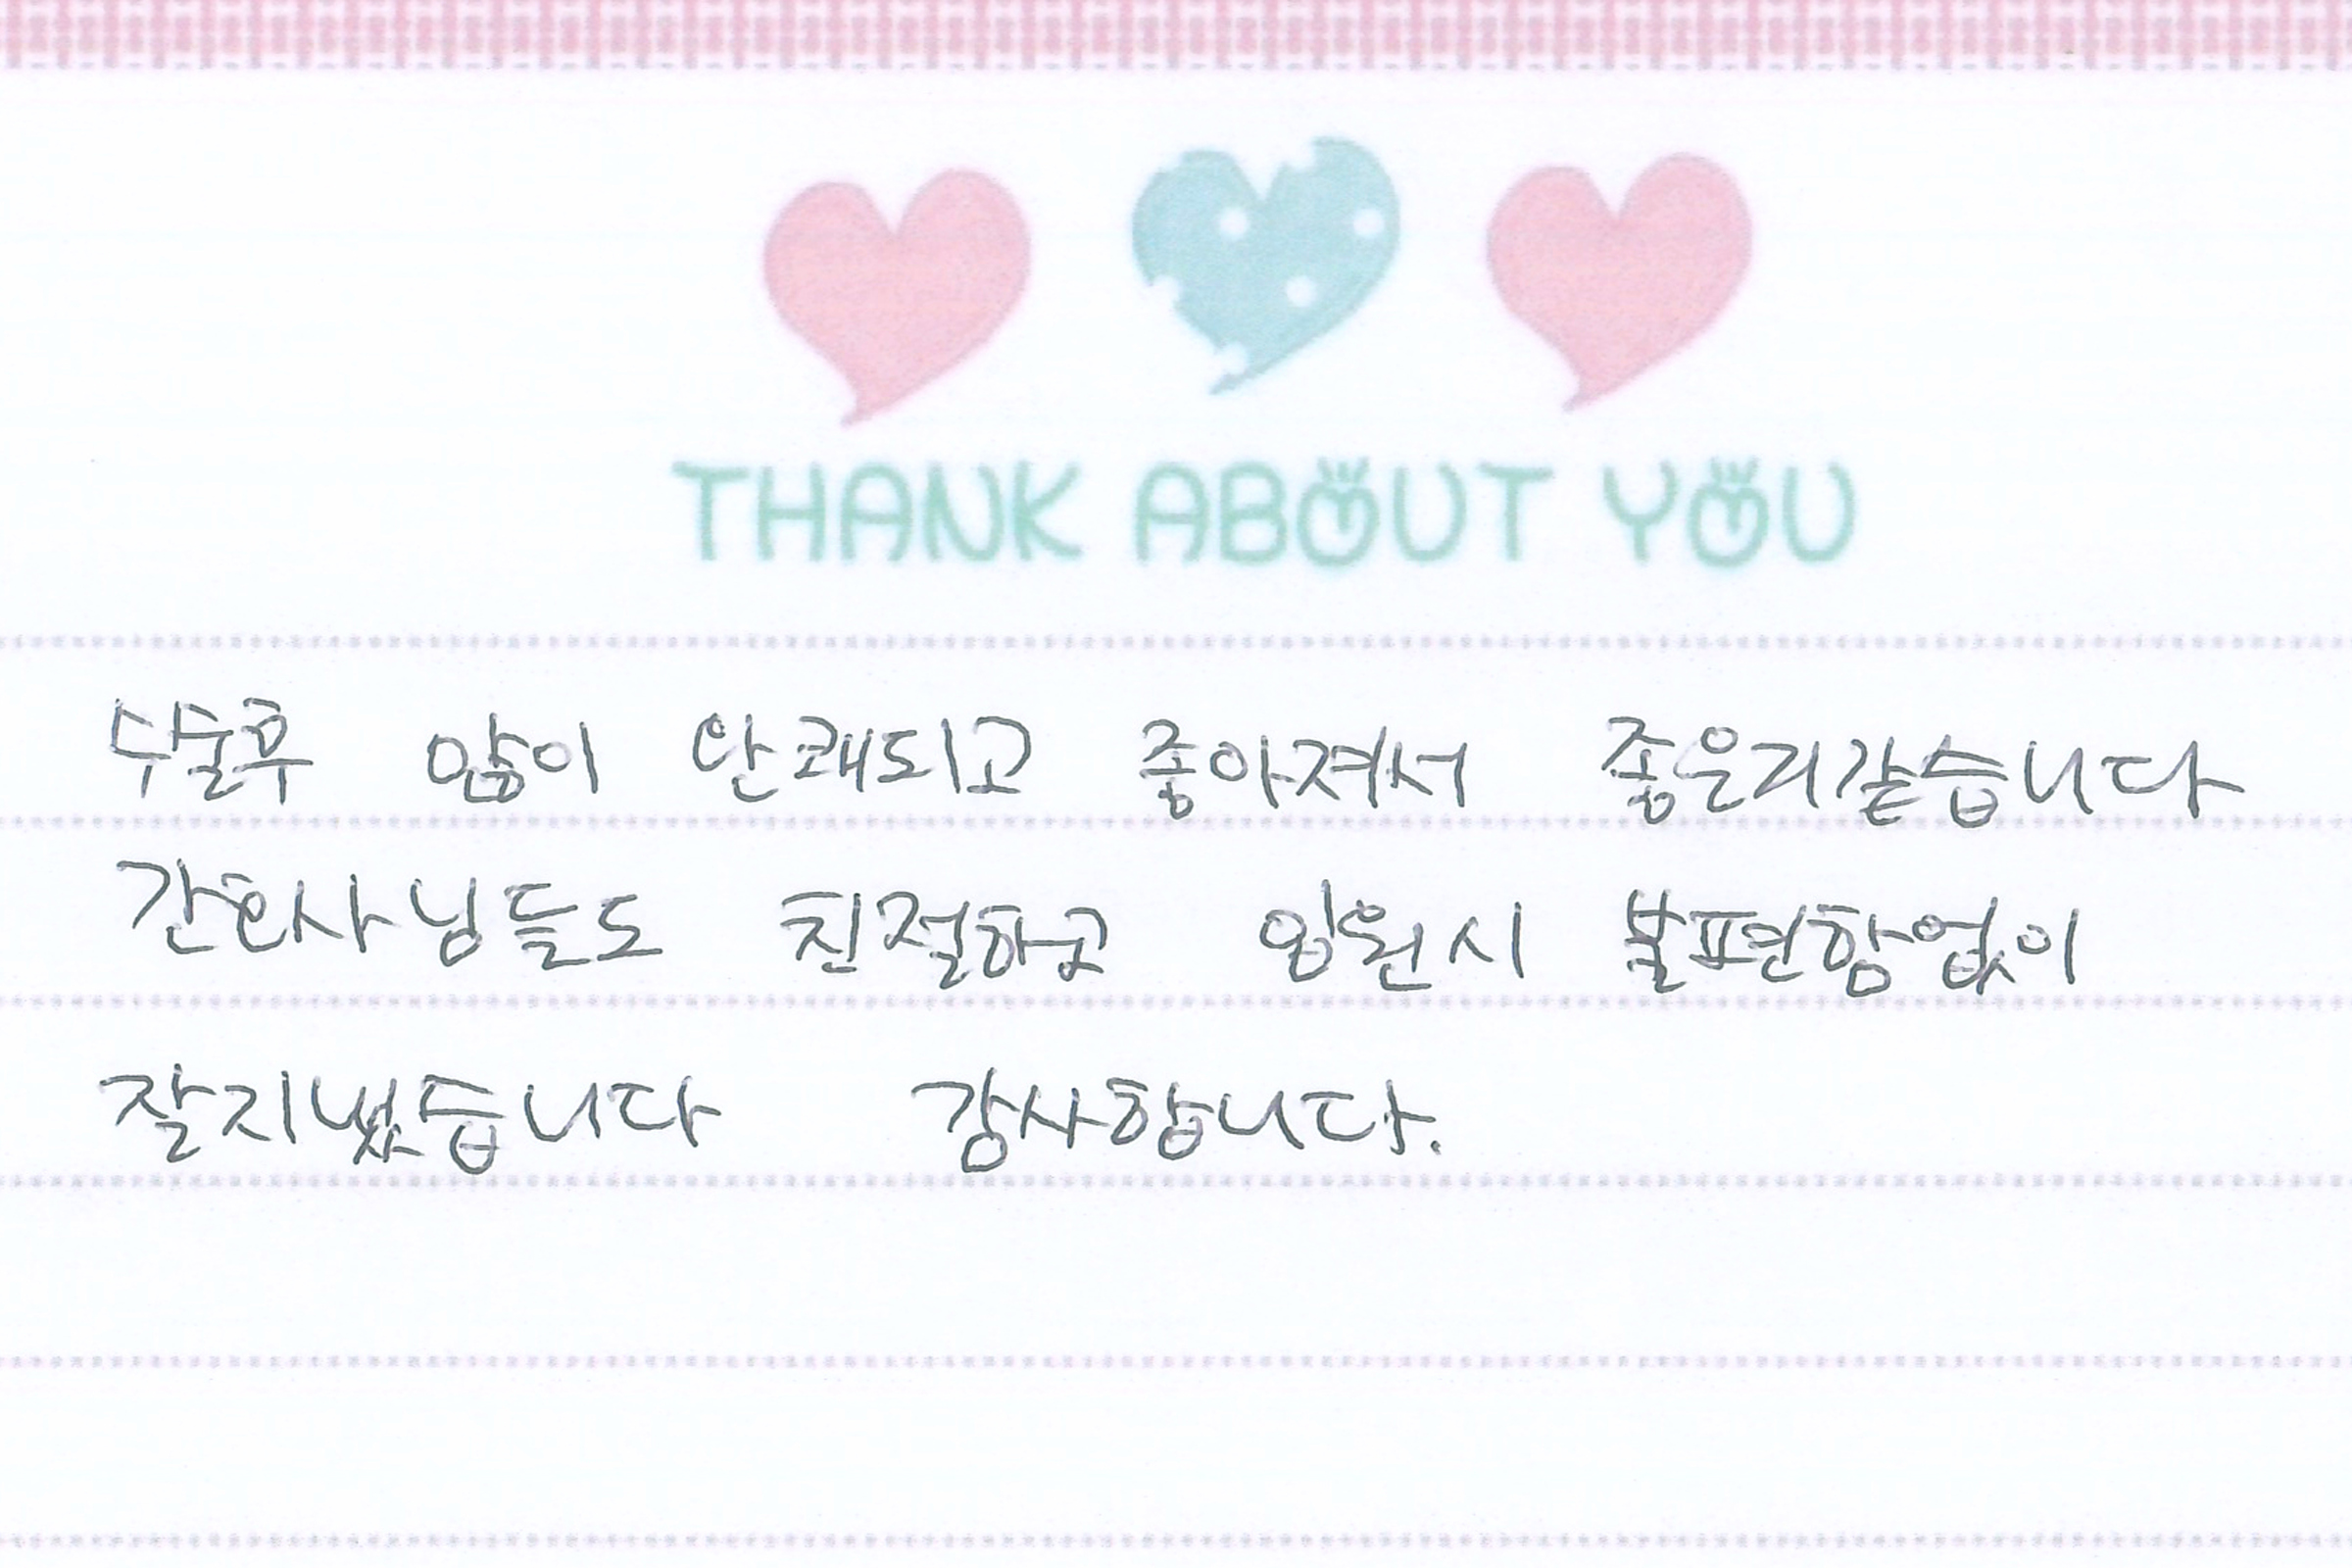 THANK ABOUT YOU
수술후 많이 완쾌되고 좋아져서 좋은거같습니다
간호사님들도 친절하고 입원시 불편함없이
잘지냈습니다 감사합니다.